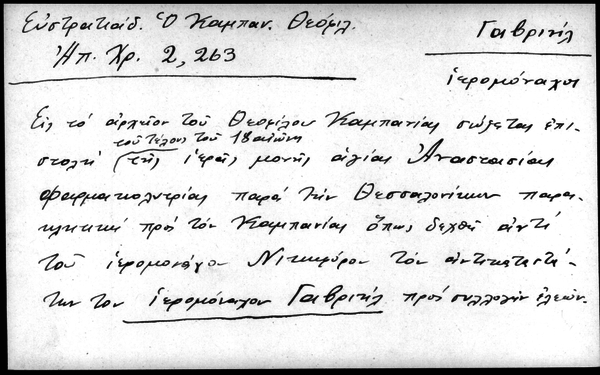 Εὐστρατιάδ. Ὁ Καμπαν. Θεόφιλ.
Ἠπ. Χρ. 2, 263
Γαβριήλ
ἱερομόναχοι
Εἰς τό ἀρχεῖον τοῦ Θεοφίλου Καμπανίας σώζεται ἐπι-
τοῦ τέλους τοῦ 18 αἰῶνος
στολή (τῆς ἱερᾶς μονῆς ἁγίας Ἀναστασίας
φαρμακολυτρίας παρά τήν Θεσσαλονίκην παρα-
κλητική πρός τόν Καμπανίας ὅπως δεχθῇ ἀντί
τοῦ ἱερομονάχου Νικηφόρου τόν ἀντικαταστά-
την του ἱερομόναχον Γαβριήλ πρός συλλογήν ἐλεῶν.